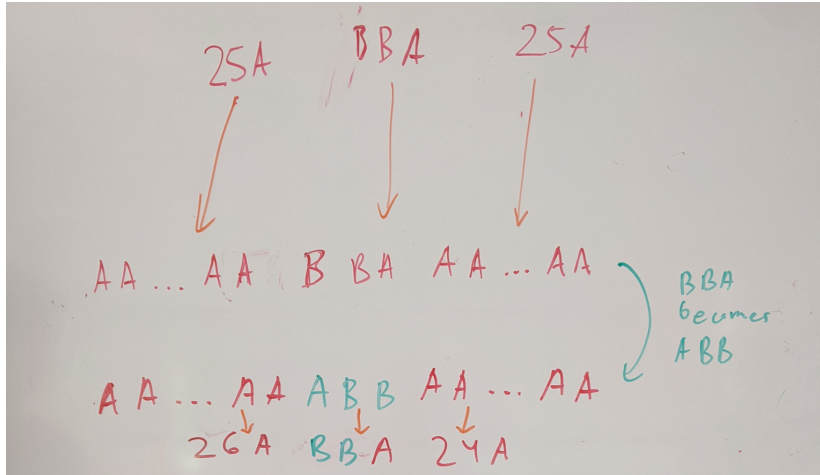 25A BBA 25A
AA ... AA BBA AA ... AA
BBA
becomes
ABB
AA ... AA ABB AA ... AA
26A BBA 24A